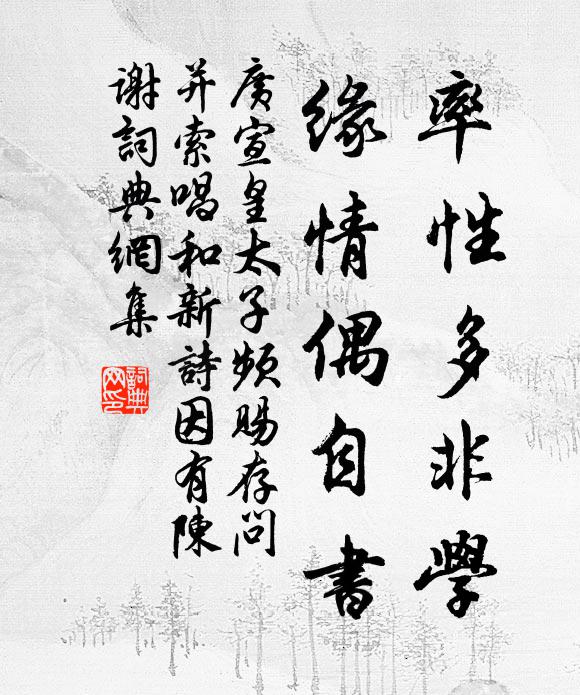 率性多非學
緣情偶自書
廣宣皇太子頻賜存問
并索唱和新詩因有陳
謝詞典網集
詞典
网印